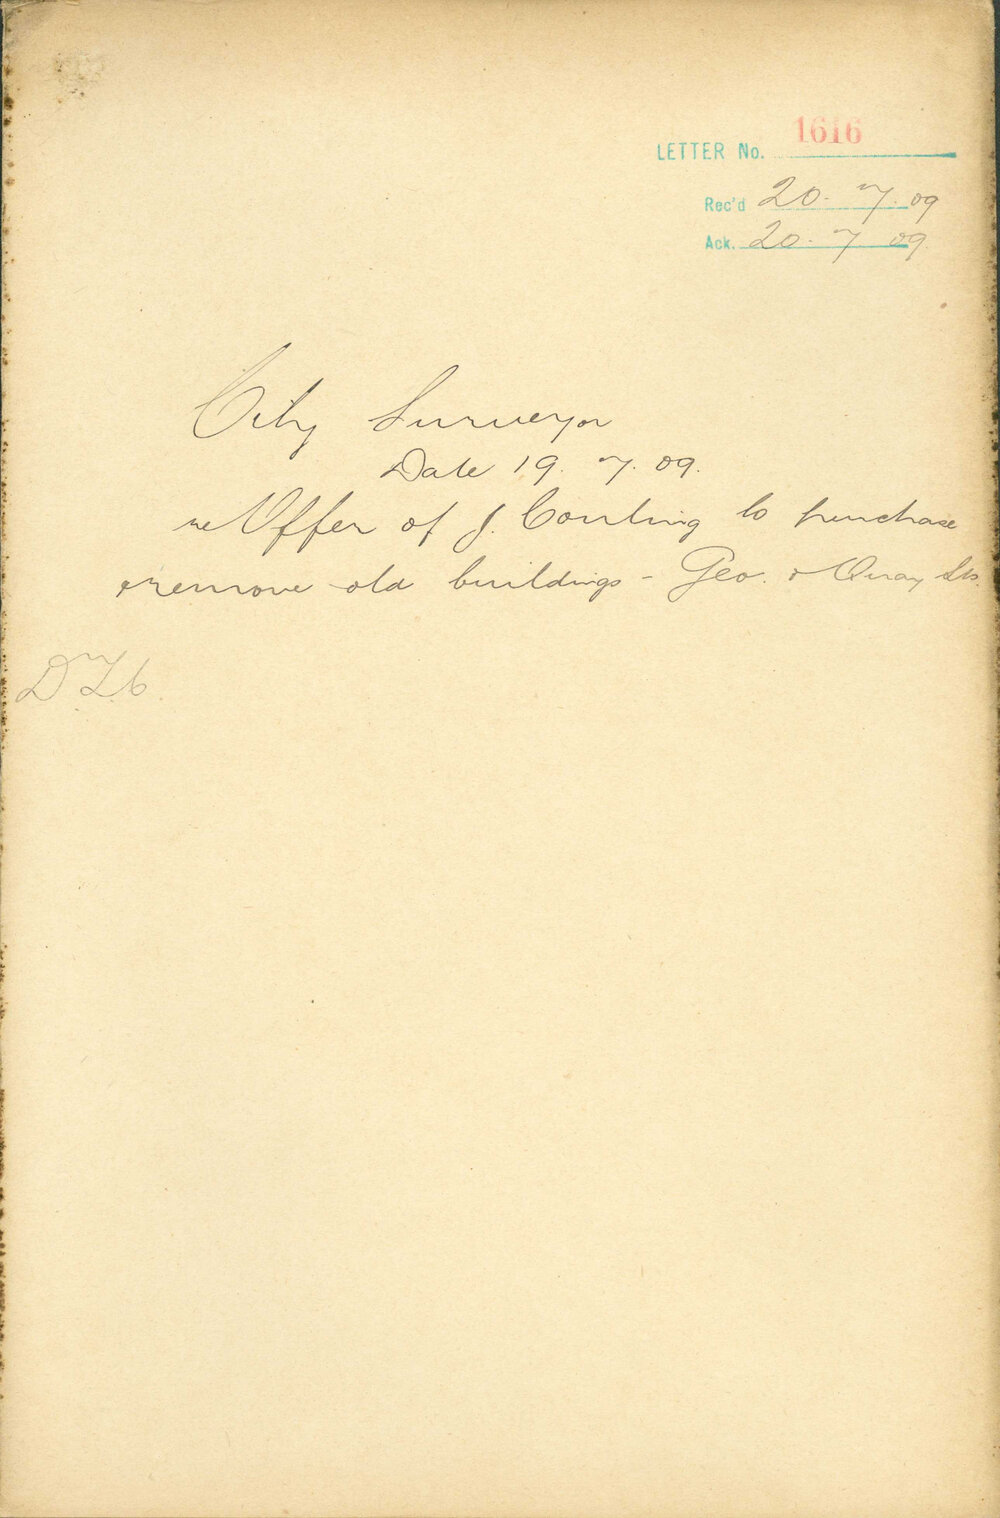 LETTER No. 1616
Rec'd 20.7.09
Ack. 20.7 09.
City Surveyor
Date 19.7.09.
re Offer of J. Couling to purchase
& remove old buildings - Geo. & Quay Sts.